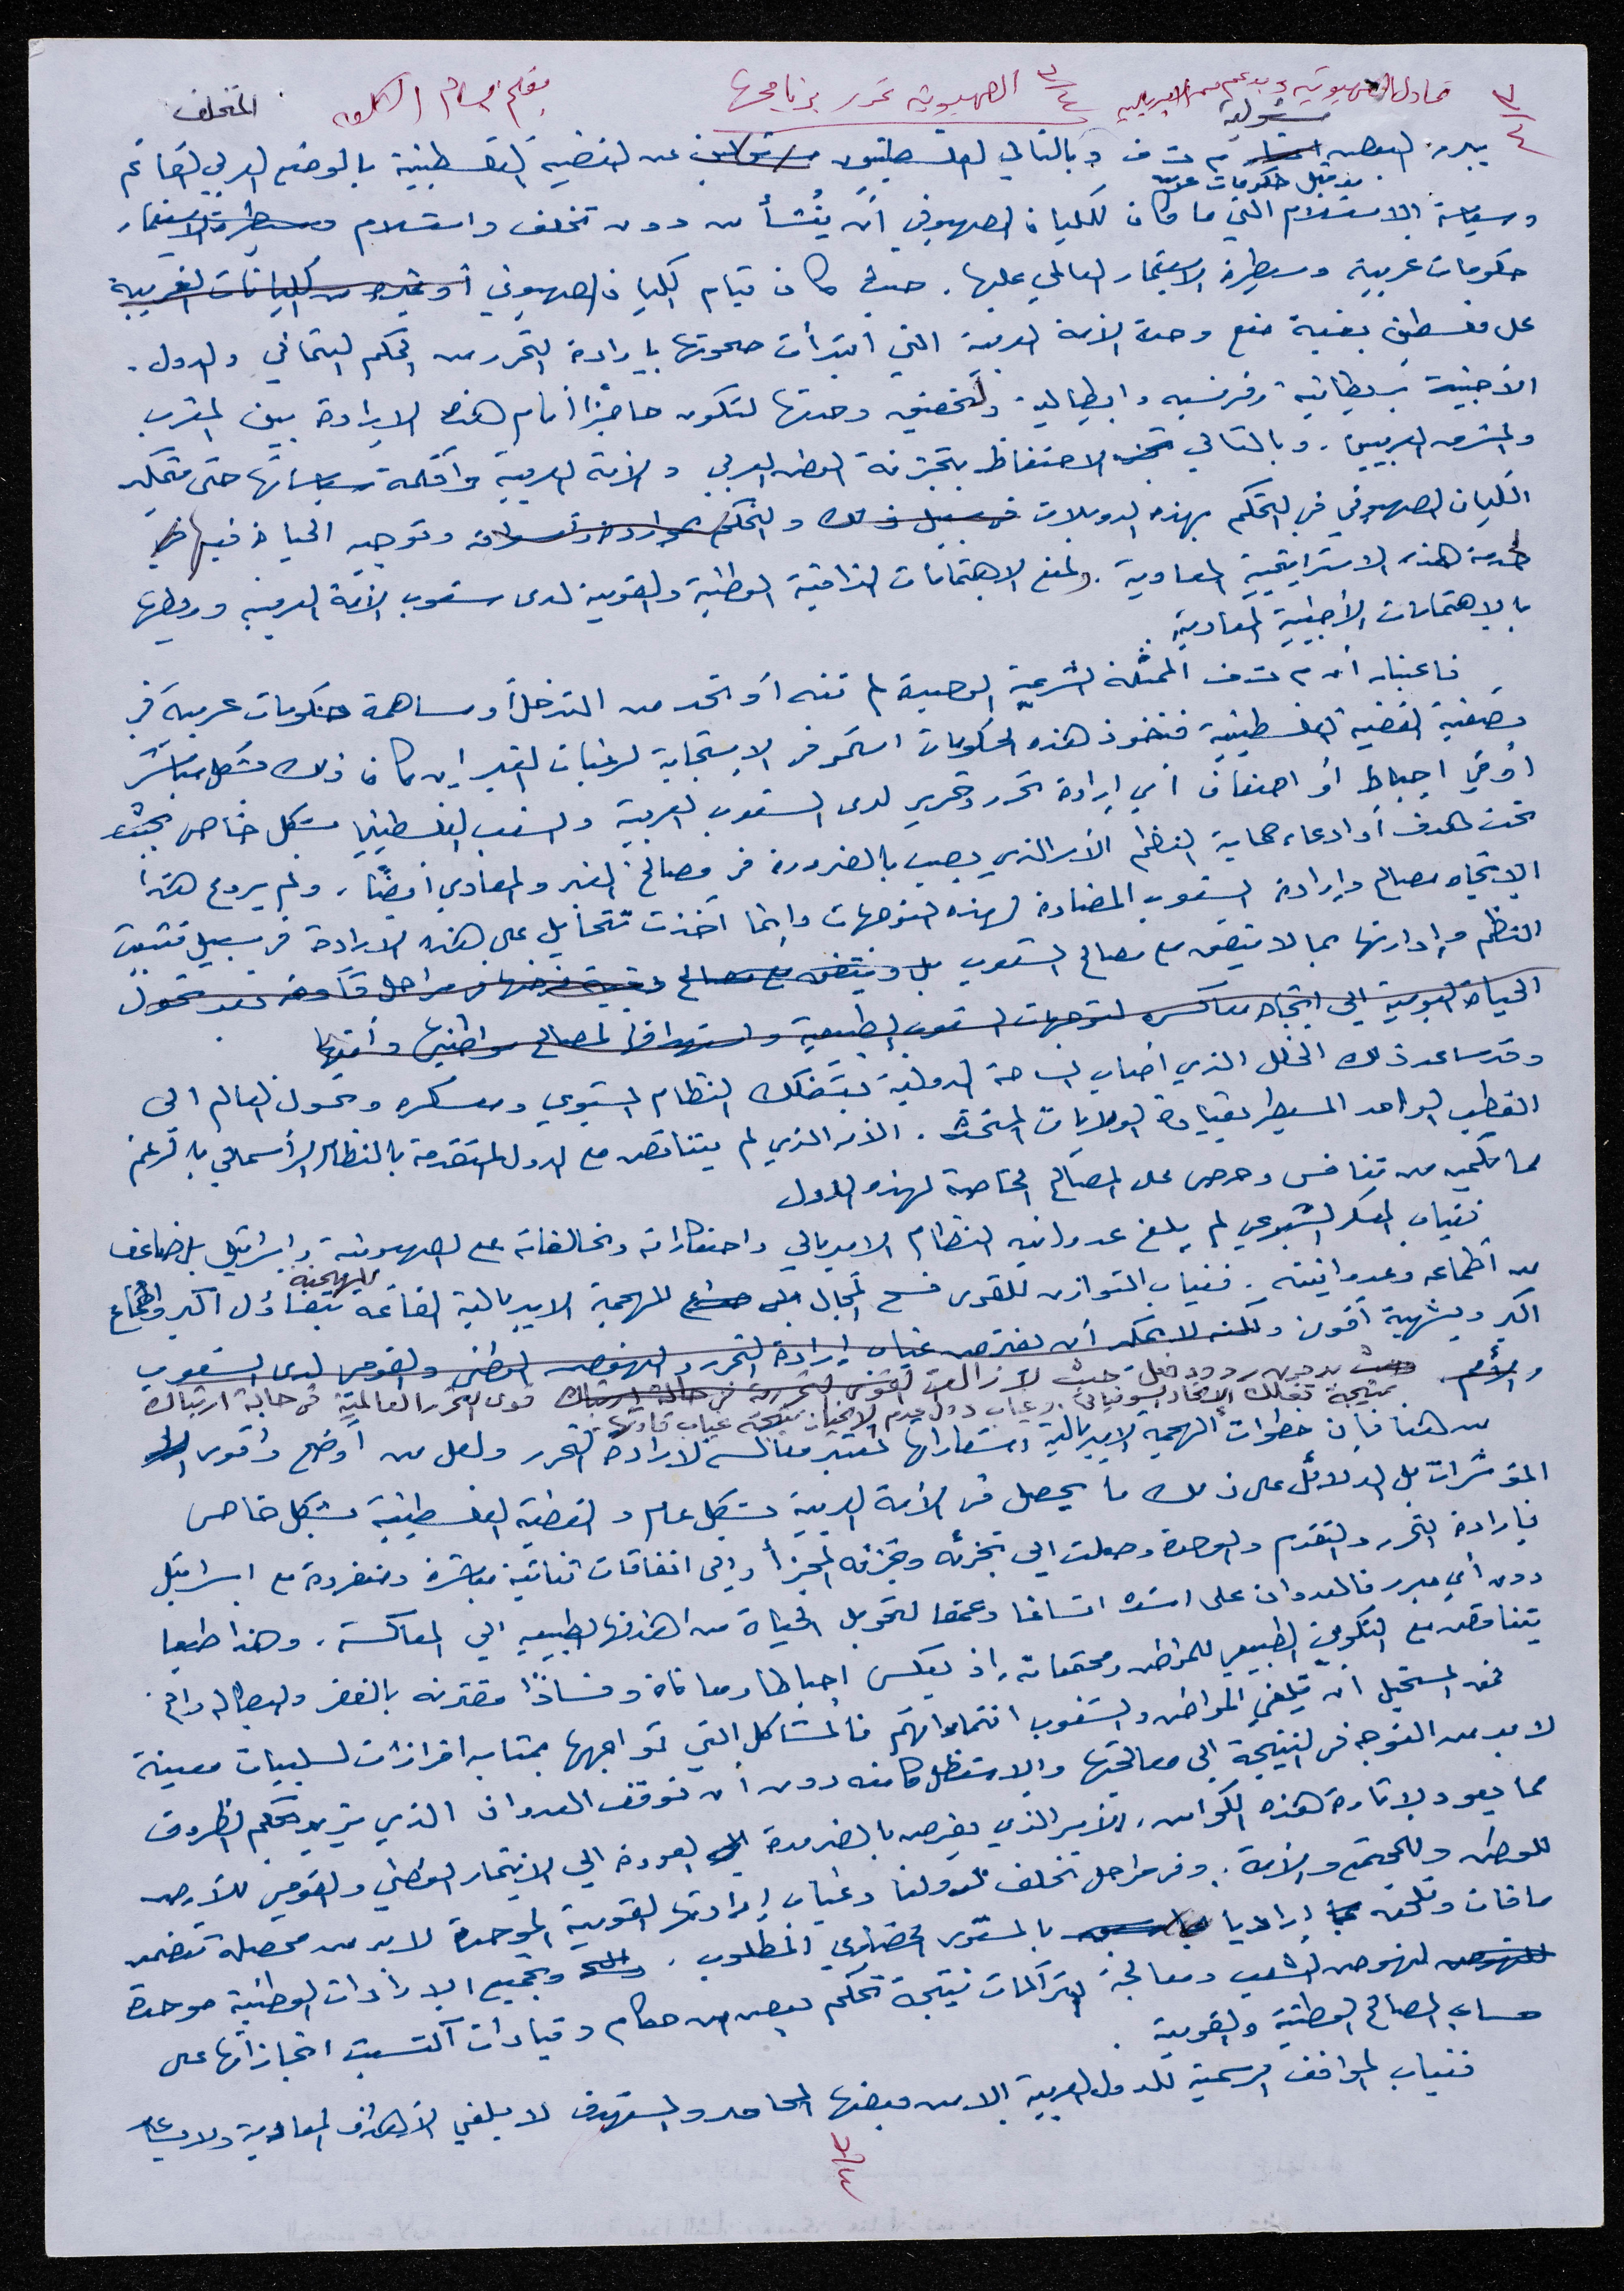 ٣/٤ الصهيونية تحرر برنامجها
المتخلف
مسئولية
يبرر البعض م ت ف وبالتالي الفلسطينيين مسئولين عن القضية الفلسطينية بالوضع العربي القائم
من قبل حكومات عربية
وسياسة الاستسلام التي ما كان للكيان الصهيوني أن يُنشأ من دون تخلف واستسلام وسيطرة الاستعمار
حكومات عربية وسيطرة الاستعمار العالمي عليها. حيث كان قيام الكيان الصهيوني أو غيره من الكيانات الغريبة
على فلسطين بغية منع وحدة الأمة العربية التي ابتدأت صحوتها بإرادة التحرر من الحكم العثماني والدول
الأجنبية بريطانية وفرنسيه وايطالية ولتحقيق وحدتها لتكون حاجزاً أمام هذه الإرادة بين المغرب
والمشرق العربيين. وبالتالي الاحتفاظ بتجزئة الوطن العربي والأمة العربية وأقلمة سياساتها حتى يتمكن
الكيان الصهيوني في التحكم بهذه الدويلات في سبيل ذلك والتحكم وتوجيه الحياة فيها في
خدمة هذه الاستراتيجية المعادية. ولمنع الاهتمامات الذاتية الوطنية والقومية لدى شعوب الأمة العربية وربطها
بالاهتمامات الأجنبية المعادية.
فاعتبار أن م ت ف الممثلة الشرعية الوحيدة لم تنه أو تحد من التدخل أو مساهمة حكومات عربية في
تصفية القضية الفلسطينية فنفوذ هذه الحكومات استمر في الاستجابة لرغبات الغير إن كان ذلك بشكل مباشر
أو في احباط أو اضعاف أي إرادة تحرر وتحرير لدى الشعوب العربية والشعب الفلسطيني بشكل خاص
تحت هدف أو ادعاء حماية النظم الأمر الذي يصب بالضرورة في مصالح الغير والمعادي أيضاً. ولم يردع هذا
الاتجاه مصالح وإرادة الشعوب المضادة لهذه التوجهات وإنما أخذت تتحايل على هذه الإرادة في سبيل تثبيت
النظم وإدارتها بما لا يتفق مع مصالح الشعوب بل ويتفق مع مصالح
الحياة اليومية إلى اتجاه معاكس لتوجهات الشعوب الطبيعية واستهدافها لمصالح مواطنيها وأمتها
وقد ساعد ذلك الخلل الذي أصاب الساحة الدولية بتفكك النظام الشيوعي ومعسكره وتحول العالم الى
القطب الواحد المسيطر بقيادة الولايات المتحدة. الأمر الذي لم يتناقض مع الدول المتقدمة بالنظام الرأسمالي بالرغم
مما تكنه من تنافس وحرص على المصالح الخاصة لهذه الدول
فغياب المعسكر الشيوعي لم يلغ عدوانية النظام الامبريالي واحتكاراته وتحالفاته مع الصهيونية وإسرائيل بل ضاعف
من أطماعه وعدوانيته. فغياب التوازن للقوى فسح المجال للهجمة الامبريالية القائمة بتفاؤل أكبر وأطماع
أكبر وبشهية أقوى ولكنه لا يمكن أن نفترض غياب إرادة التحرر والنهوض الوطني والقومي لدى الشعوب
والأمم. بدون ردود فعل حيث لا زالت قوى التحرر العالمية في حالة ارتباك
نتيجة تفكك الاتحاد السوفياتي وغياب دول عدم الانحياز نتيجة غياب قادتها
من هنا فإن خطوات الهجمة الامبريالية وشعاراتها تعتبر معاكسة لإرادة التحرر ولعل من أوضح وأقوى
المؤشرات بل الدلائل على ذلك ما يحصل في الأمة العربية بشكل عام والقضية الفلسطينية بشكل خاص
فإرادة التحرر والتقدم والوحدة وصلت إلى تجزئه وتجزئه المجزأ وإلى اتفاقات ثنائية مباشرة ومنفردة مع اسرائيل
دون أي مبرر فالعدوان على اشده اتساعا وعمقا لتحويل الحياة من أهدافها الطبيعيه الي المعاكسة. وهذا طبعا
يتناقض مع التكوين الطبيعي للمواطن ومجتمعاته. إذ يعكس إحباطا ومعاناة وفسادًا مقترنه بالفقر والبطاله
فمن المستحيل أن يلغي المواطن والشعوب انتماءاتهم فالمشاكل التي تواجهها بمثابه افرازات لسلبيات معينة
لا بد من التوجه في النتيجة إلى معالجتها والا ستظل كامنه دون أن توقف العدوان الذي يريد تحكم الظروف
مما يعود لإثارة هذه الكوامن. الأمر الذي يفرض بالضرورة العودة إلى الانتماء الوطني والقومي للأرض
للوطن وللمجتمع والأمة. وفي مراحل تخلف الدول وغياب إرادتها القومية الموحدة لا بد من محصلة تتضمن
ما فات وتلحقه إراديا بالمستوى الحضاري المطلوب. وتجميع الإرادات الوطنية موحدة
لنهوض الشعب ومعالجة التراكمات نتيجة تحكم البعض من حكام وقيادات اكتسبت انجازاتها على
حساب المصالح الوطنية والقومية.
فغياب المواقف الرسمية للدول العربية إلا من بعضها المحاصر والمستهدف لا يلغي الأهداف المعادية